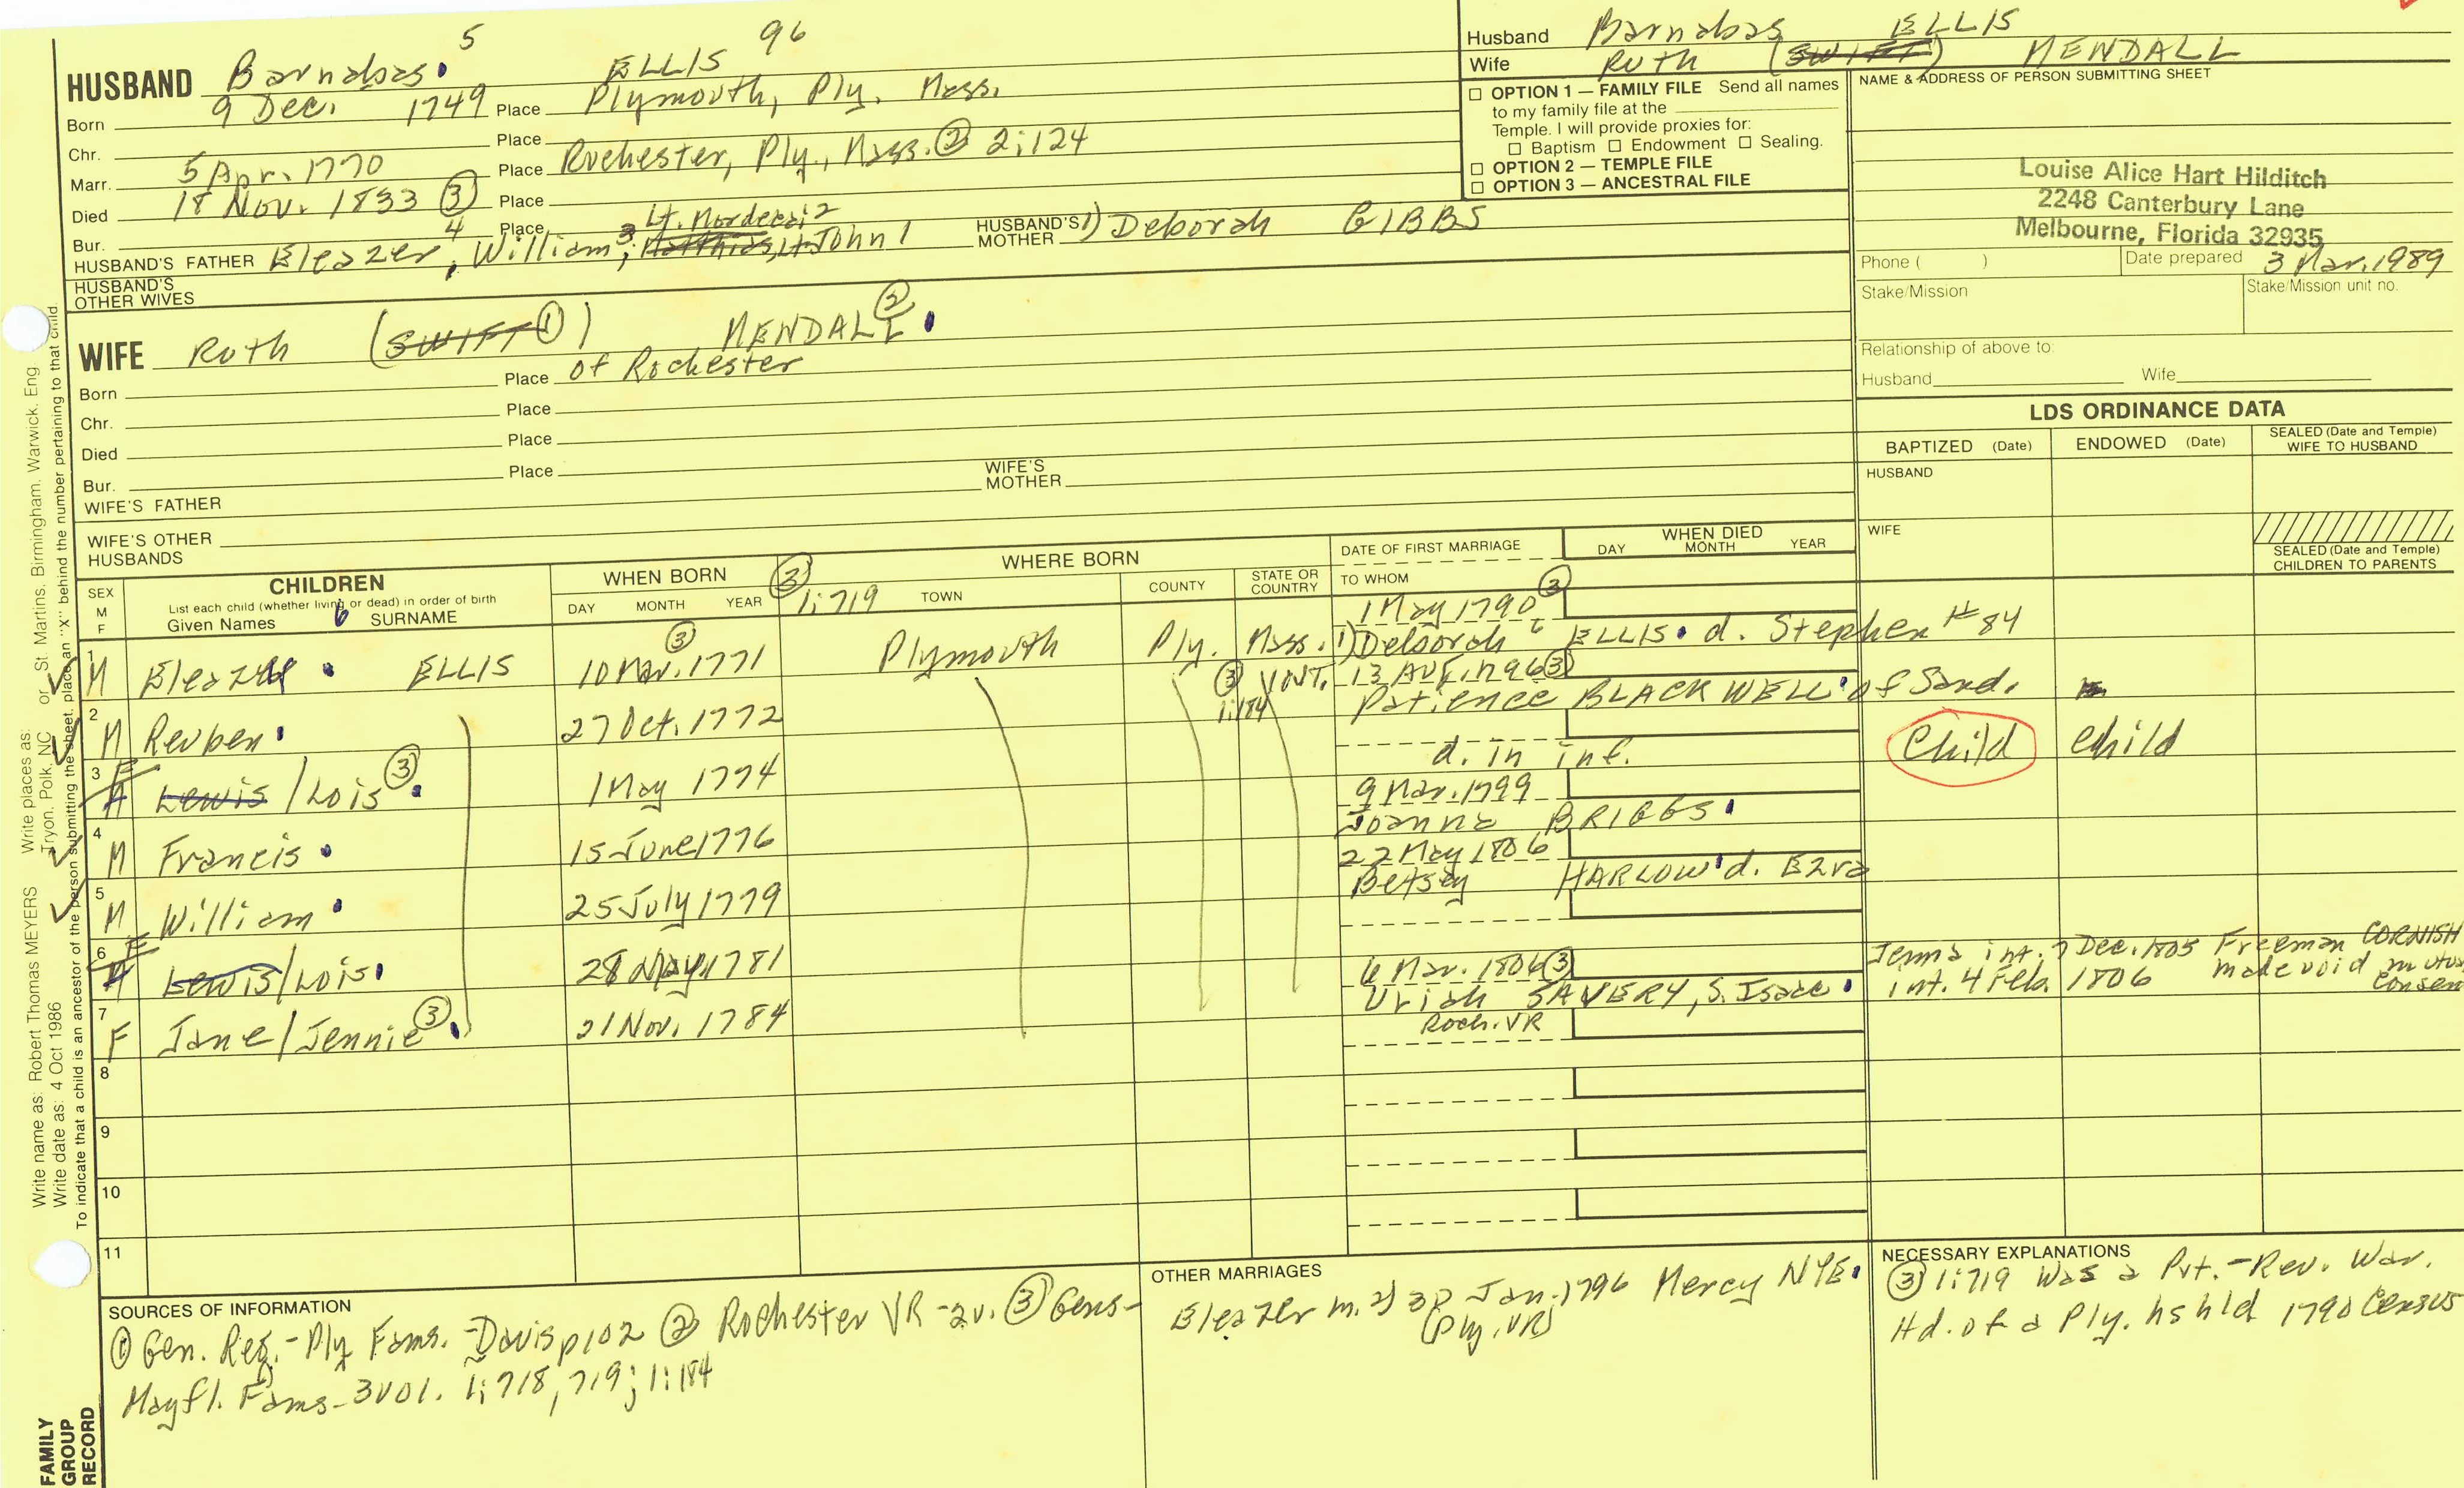 5
96
HUSBAND Barnabas ELLIS
Born 9 Dec. 1749 Place Plymouth, Ply. Mass.
Chr. Place
Marr. 5 Apr. 1770 Place Rochester, Ply., Mass. ② 2:124
Died 18 Nov. 1833 ③ Place
Bur. Place
Lt. Mordecai 2
HUSBAND'S FATHER Eleazer 4, William 3, Matthias, Lt John 1 HUSBAND'S MOTHER 1) Deborah GIBBS
HUSBAND'S OTHER WIVES
WIFE Ruth (SWIFT ①) MENDALL ②
Born Place of Rochester
Chr. Place
Died Place
Bur. Place
WIFE'S FATHER WIFE'S MOTHER
WIFE'S OTHER HUSBANDS
Husband Barnabas ELLIS
Wife Ruth (SWIFT) MENDALL
☐ OPTION 1 — FAMILY FILE Send all names
to my family file at the
Temple. I will provide proxies for:
☐ Baptism ☐ Endowment ☐ Sealing.
☐ OPTION 2 — TEMPLE FILE
☐ OPTION 3 — ANCESTRAL FILE
NAME & ADDRESS OF PERSON SUBMITTING SHEET
Louise Alice Hart Hilditch
2248 Canterbury Lane
Melbourne, Florida 32935
Phone ( ) Date prepared 3 Mar. 1989
Stake/Mission Stake/Mission unit no.
Relationship of above to:
Husband Wife
LDS ORDINANCE DATA
BAPTIZED (Date) ENDOWED (Date) SEALED (Date and Temple) WIFE TO HUSBAND
HUSBAND
WIFE
SEALED (Date and Temple) CHILDREN TO PARENTS
SEX M F
CHILDREN
List each child (whether living or dead) in order of birth
Given Names 6 SURNAME
WHEN BORN
DAY MONTH YEAR
③ 1:719
WHERE BORN
TOWN COUNTY STATE OR COUNTRY
DATE OF FIRST MARRIAGE
TO WHOM
WHEN DIED
DAY MONTH YEAR
1 May 1790 ③
1 M Eleazer ELLIS ③ 10 Mar. 1771 Plymouth Ply. Mass. 1) Deborah 6 ELLIS d. Stephen # 84
③ 1:184 13 Aug. 1796 ③
2 M Reuben 27 Oct. 1772 Patience BLACKWELL of Sand.
3 F Lewis/Lois ③ 1 May 1774 d. in inf. Child child
9 Mar. 1799
4 M Francis 15 June 1776 Joanna BRIGGS
22 May 1806
5 M William 25 July 1779 Betsey HARLOW d. Ezra
6 F Lewis/Lois 28 May 1781
6 Mar. 1806 ③
7 F Jane/Jennie ③ 21 Nov. 1784 Uriah SAVERY, S. Isaac
Roch. VR
Jenna int. 7 Dec. 1805 Freeman CORNISH
int. 4 Feb. 1806 made void mutual consent
8
9
10
11
SOURCES OF INFORMATION
① Gen. Reg. - Ply Fams. - Davis p102 ② Rochester VR - 2v. ③ Gens -
Mayfl. Fams - 3 vol. 1:718, 719; 1:184
OTHER MARRIAGES
Eleazer m. 2) 30 Jan. 1796 Mercy NYE
(Ply. VR)
NECESSARY EXPLANATIONS
③ 1:719 Was a Pvt. - Rev. War.
Hd. of a Ply. hshld 1790 Census
Write name as: Robert Thomas MEYERS Write places as: Tryon, Polk, NC or St. Martins, Birmingham, Warwick, Eng
Write date as: 4 Oct 1986
To indicate that a child is an ancestor of the person submitting the sheet, place an "X" behind the number pertaining to that child.
FAMILY GROUP RECORD